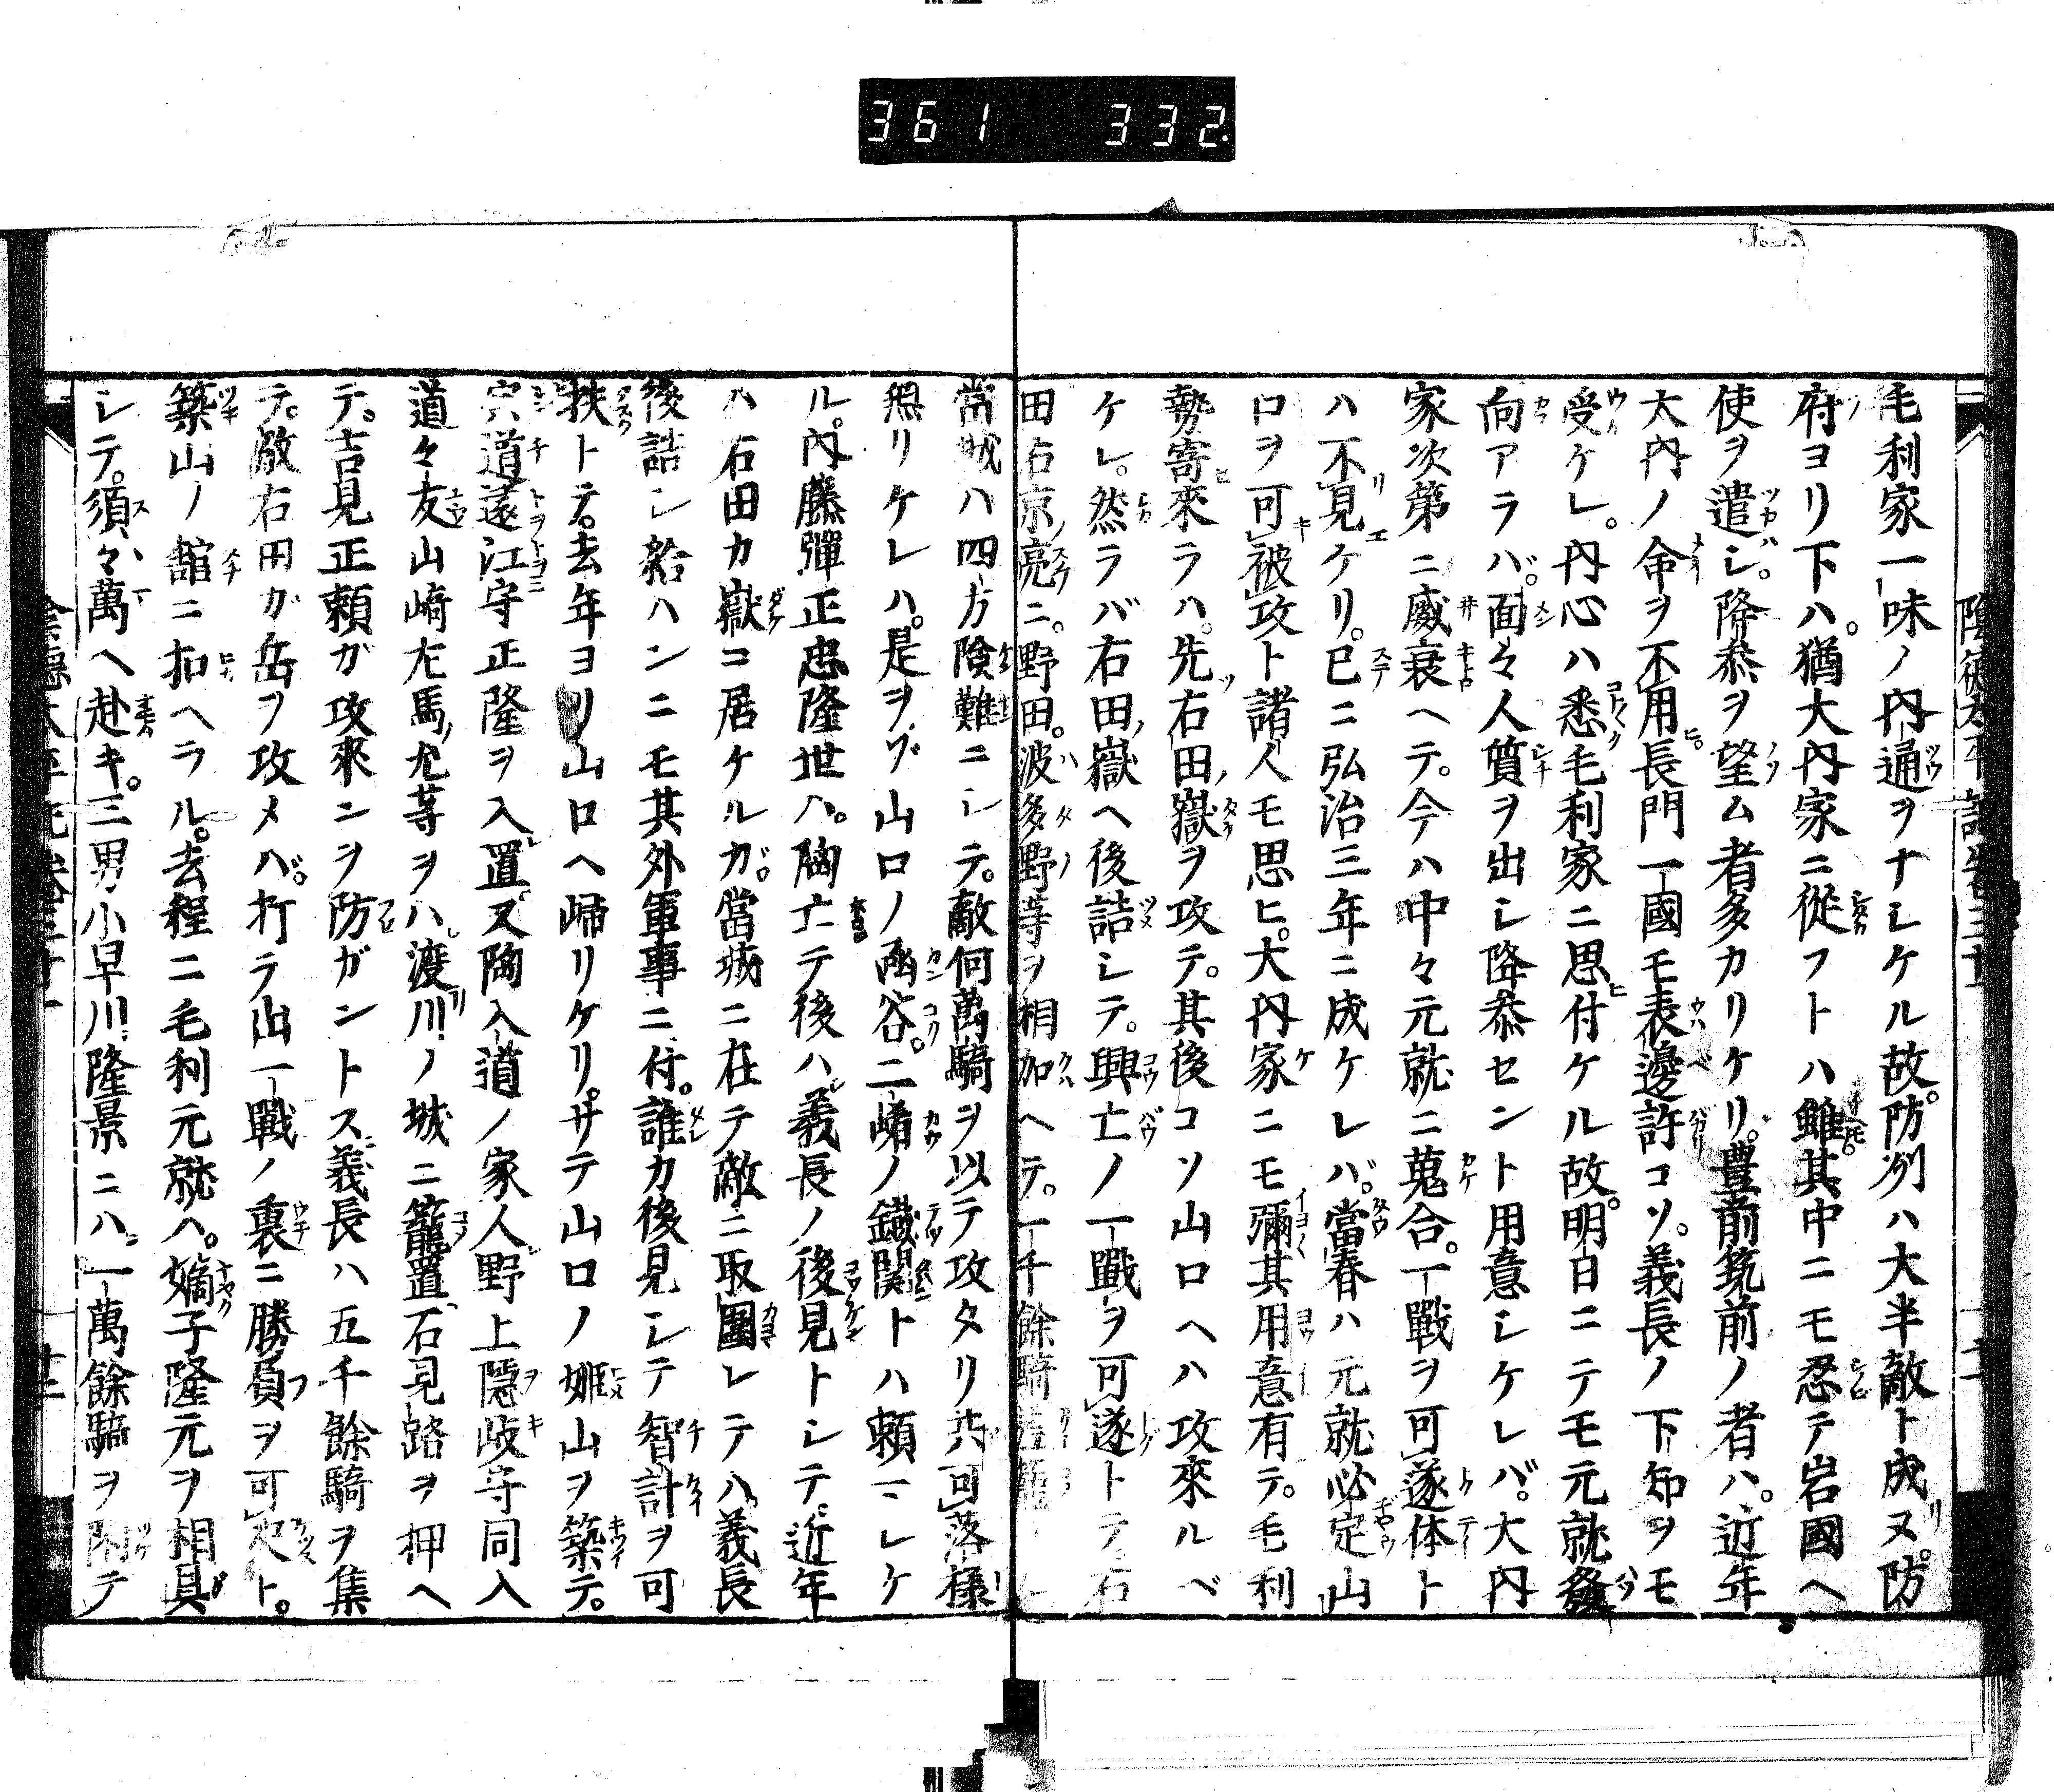 361 332
毛利家一味ノ内通ヲナシケル故。防州ハ大半敵ト成ヌ。防
府ヨリ下ハ。猶大内家ニ從フトハ雖其中ニモ忍テ岩國ヘ
使ヲ遣シ。降参ヲ望ム者多カリケリ。豊前筑前ノ者ハ。近年
大内ノ命ヲ不用長門一國モ表邊許コソ。義長ノ下知ヲモ
受ケレ。内心ハ悉毛利家ニ思付ケル故。明日ニテモ元就發
向アラバ。面々人質ヲ出シ降参セント用意シケレバ。大内
家次第ニ威衰ヘテ。今ハ中々元就ニ蒐合。一戰ヲ可遂体ト
ハ不見ケリ。已ニ弘治三年ニ成ケレバ。當春ハ元就必定山
口ヲ可被攻ト諸人モ思ヒ。大内家ニモ彌其用意有テ。毛利
勢寄來ラハ。先右田ノ嶽ヲ攻テ。其後コソ山口ヘハ攻來ルベ
ケレ。然ラバ右田ノ嶽ヘ後詰シテ。興亡ノ一戰ヲ可遂トテ。右
田右京ノ亮ニ。野田。波多野等ヲ相加ヘテ。一千餘騎
當城ハ四方險難ニシテ。敵何萬騎ヲ以テ攻タリ共可落樣
無リケレハ。是ヲゾ山口ノ函谷。二崤ノ鐵関トハ頼ミシケ
ル。内藤彈正忠隆世ハ。陶亡テ後ハ義長ノ後見トシテ。近年
ハ右田カ嶽コ居ケルガ。當城ニ在テ敵ニ取圍レテハ。義長
後詰シ給ハンニモ其外軍事ニ付。誰カ後見シテ智計ヲ可
扶トテ。去年ヨリ山口ヘ帰リケリ。サテ山口ノ姫山ヲ築テ。
宍道遠江守正隆ヲ入置。又陶入道ノ家人野上隱岐守同入
道々友山﨑右馬ノ允等ヲハ渡川ノ城ニ籠置。石見路ヲ押ヘ
テ。吉見正頼ガ攻來ンヲ防ガントス。義長ハ五千餘騎ヲ集
テ。敵右田ガ岳ヲ攻メバ。打テ出一戰ノ裏ニ勝負ヲ可决ト。
築山ノ舘ニ扣ヘラル。去程ニ毛利元就ハ。嫡子隆元ヲ相具
シテ。須々萬ヘ赴キ。三男小早川隆景ニハ。一萬餘騎ヲ附テ